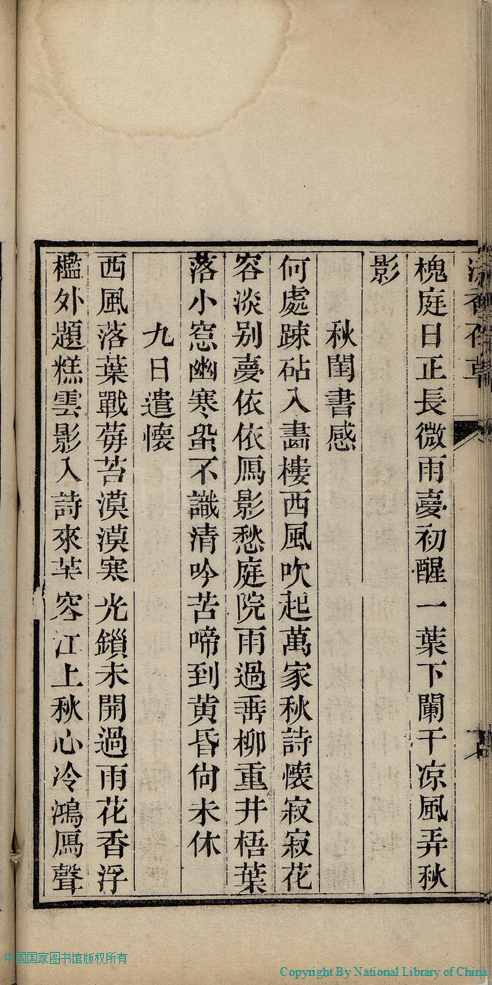 槐庭日正長微雨夢初醒一葉下闌干凉風弄秋
影
秋閨書感
何處踈砧入畵樓西風吹起萬家秋詩懷寂寂花
容淡别夢依依鴈影愁庭院雨過垂柳重井梧葉
落小窓幽寒蛩不識清吟苦啼到黄昏尙未休
九日遣懷
西風落葉戰苔漠漠寒光鎖未開過雨花香浮
檻外題糕雲影入詩來容江上秋心冷鴻鴈聲
中国国家图书馆版权所有
Copyright By National Library of China